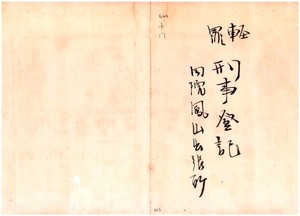 輕罪
刑事登記
同院鳳山出張所